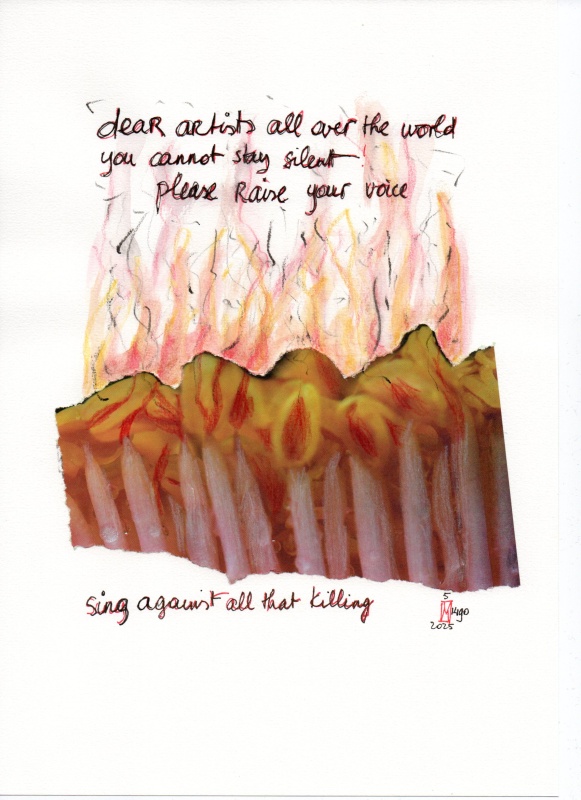 dear artists all over the world
you cannot stay silent
please raise your voice
sing against all that killing
5
2025